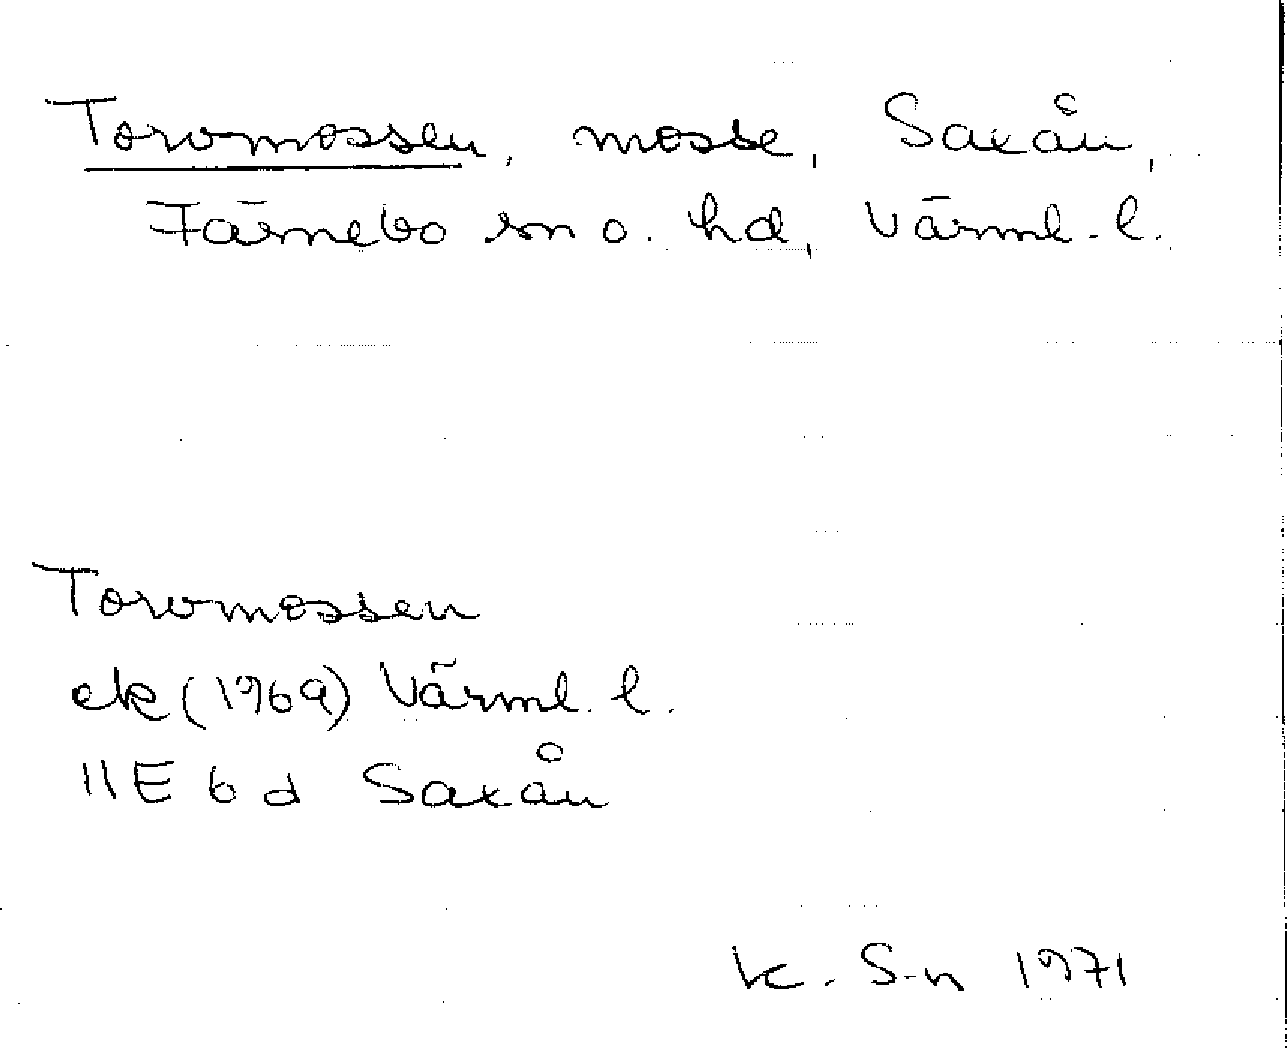 Torvmossen, mosse, Saxån,
Färnebo sn o. hd, Värml. l.
Torvmossen
ek (1969) Värml. l.
11E 6d Saxån
K. S-n 1971